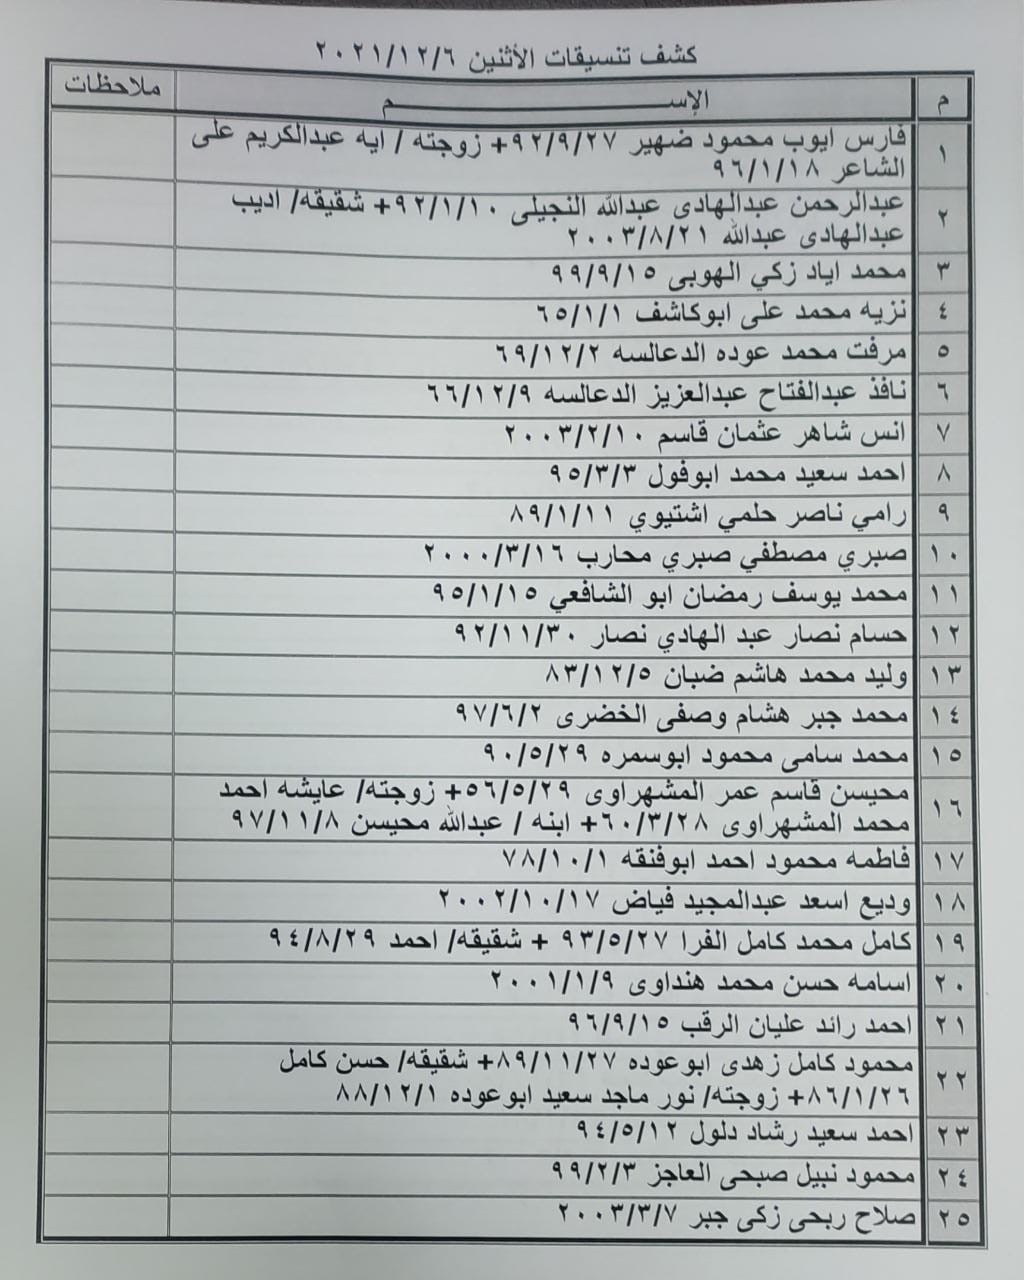 كشف تنسيقات الأثنين ٢٠٢١/١٢/٦
م الإســـــــم ملاحظات
١ فارس ايوب محمود ضهير ٩٢/٩/٢٧+ زوجته / ايه عبدالكريم على
الشاعر ٩٦/١/١٨
٢ عبدالرحمن عبدالهادى عبدالله النجيلى ٩٢/١/١٠+ شقيقه/ اديب
عبدالهادى عبدالله ٢٠٠٣/٨/٢١
٣ محمد اياد زكي الهوبى ٩٩/٩/١٥
٤ نزيه محمد على ابوكاشف ٦٥/١/١
٥ مرفت محمد عوده الدعالسه ٦٩/١٢/٢
٦ نافذ عبدالفتاح عبدالعزيز الدعالسه ٦٦/١٢/٩
٧ انس شاهر عثمان قاسم ٢٠٠٣/٢/١٠
٨ احمد سعيد محمد ابوفول ٩٥/٣/٣
٩ رامي ناصر حلمي اشتيوي ٨٩/١/١١
١٠ صبري مصطفي صبري محارب ٢٠٠٠/٣/١٦
١١ محمد يوسف رمضان ابو الشافعي ٩٥/١/١٥
١٢ حسام نصار عبد الهادي نصار ٩٢/١١/٣٠
١٣ وليد محمد هاشم ضبان ٨٣/١٢/٥
١٤ محمد جبر هشام وصفى الخضرى ٩٧/٦/٢
١٥ محمد سامى محمود ابوسمره ٩٠/٥/٢٩
١٦ محيسن قاسم عمر المشهراوى ٥٦/٥/٢٩+ زوجته/ عايشه احمد
محمد المشهراوى ٦٠/٣/٢٨+ ابنه / عبدالله محيسن ٩٧/١١/٨
١٧ فاطمه محمود احمد ابوفنقه ٧٨/١٠/١
١٨ وديع اسعد عبدالمجيد فياض ٢٠٠٢/١٠/١٧
١٩ كامل محمد كامل الفرا ٩٣/٥/٢٧ + شقيقه/ احمد ٩٤/٨/٢٩
٢٠ اسامه حسن محمد هنداوى ٢٠٠١/١/٩
٢١ احمد رائد عليان الرقب ٩٦/٩/١٥
٢٢ محمود كامل زهدى ابوعوده ٨٩/١١/٢٧+ شقيقه/ حسن كامل
٨٦/١/٢٦+ زوجته/ نور ماجد سعيد ابوعوده ٨٨/١٢/١
٢٣ احمد سعيد رشاد دلول ٩٤/٥/١٢
٢٤ محمود نبيل صبحى العاجز ٩٩/٢/٣
٢٥ صلاح ربحى زكى جبر ٢٠٠٣/٣/٧